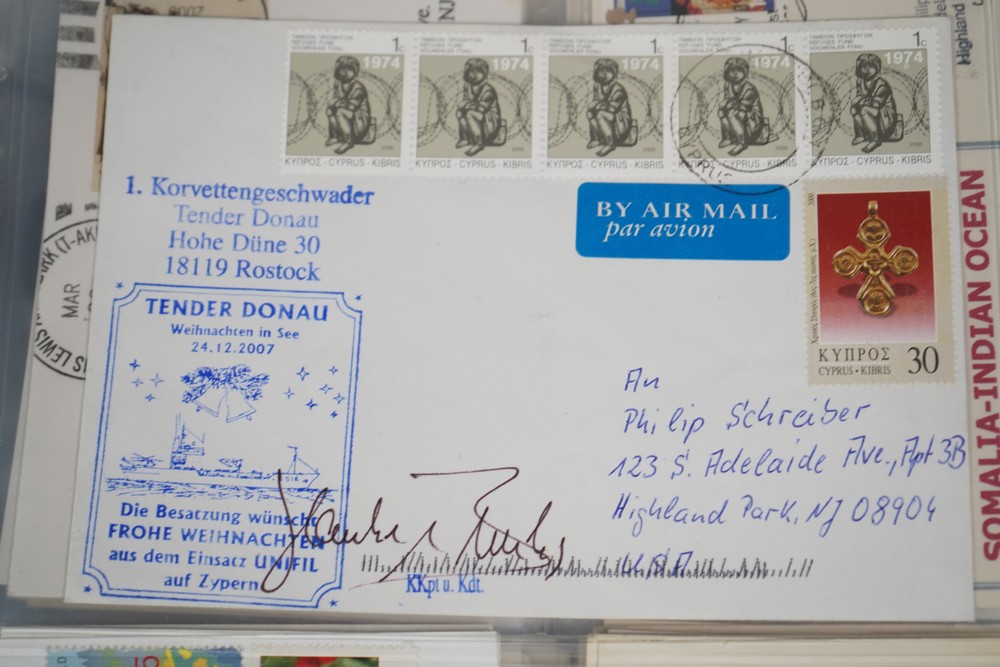 ΤΑΜΕΙΟΝ ΠΡΟΣΦΥΓΩΝ
REFUGEE FUND
GÖÇMENLER FONU
1c
1974
ΚΥΠΡΟΣ - CYPRUS - KIBRIS
ΤΑΜΕΙΟΝ ΠΡΟΣΦΥΓΩΝ
REFUGEE FUND
GÖÇMENLER FONU
1c
1974
ΚΥΠΡΟΣ - CYPRUS - KIBRIS
ΤΑΜΕΙΟΝ ΠΡΟΣΦΥΓΩΝ
REFUGEE FUND
GÖÇMENLER FONU
1c
1974
ΚΥΠΡΟΣ - CYPRUS - KIBRIS
ΤΑΜΕΙΟΝ ΠΡΟΣΦΥΓΩΝ
REFUGEE FUND
GÖÇMENLER FONU
1c
1974
ΚΥΠΡΟΣ - CYPRUS - KIBRIS
ΤΑΜΕΙΟΝ ΠΡΟΣΦΥΓΩΝ
REFUGEE FUND
GÖÇMENLER FONU
1c
1974
ΚΥΠΡΟΣ - CYPRUS - KIBRIS
1. Korvettengeschwader
Tender Donau
Hohe Düne 30
18119 Rostock
BY AIR MAIL
par avion
ΚΥΠΡΟΣ
CYPRUS • KIBRIS
30
TENDER DONAU
Weihnachten in See
24.12.2007
Die Besatzung wünscht
FROHE WEIHNACHTEN
aus dem Einsatz UNIFIL
auf Zypern
KKpt u. Kdt.
An
Philip Schreiber
123 S. Adelaide Ave., Apt 3B
Highland Park, NJ 08904
USA
SOMALIA-INDIAN OCEAN
Highland
NJ
MAR